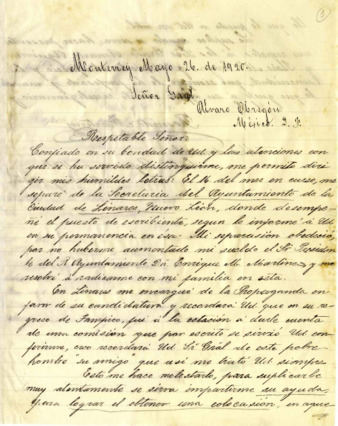 Monterrey Mayo 26. de 1920.
Señor Gral.
Alvaro Obregón
México. D. F.
Respetable Señor:
Confiado en su bondad de Ud y las atenciones con
que se ha servido distinguirme, me permito diri
gir mis humildes letras: El 14 del mes en curso, me
separé de la Secretaría del Ayuntamiento de la
Ciudad de Linares Nuevo León, donde desempe
ñé el puesto de escribiente, según le informé a Ud
en su permanencia en esa. Mi separación obedeció
por no haberme aumentado mi sueldo el Sr. Presiden
te del R. Ayuntamiento Dn. Enrique M. Martínez, y
resolví a radicarme con mi familia en ésta.
En Linares me encargué de la Propaganda en
favor de su candidatura, y recordará Ud que en su re
greso de Tampico, fuí a la estación a darle cuenta
de una comisión que por escrito se sirvió Ud con
ferirme, eso recordará Ud Sr. Gral. de este pobre
hombre "su amigo" que así me trató Ud siempre.
Esto me hace molestarlo, para suplicarle
muy atentamente se sirva impartirme su ayuda,
para lograr el obtener una colocación, en